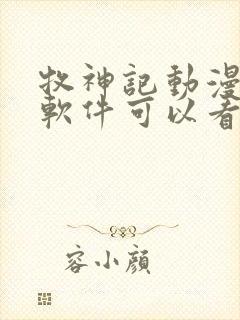 牧神記動漫
軟件可以看
容小顏